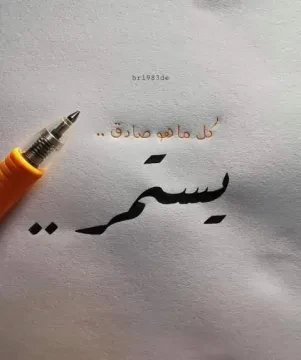 br1983de
كل ما هو صادق ..
يستمر ..